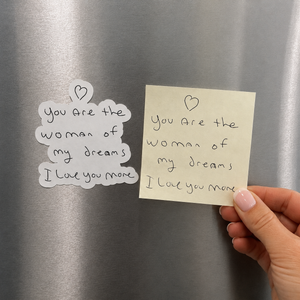 You Are the
woman of
my dreams
I Love you more
You Are the
woman of
my dreams
I Love you more